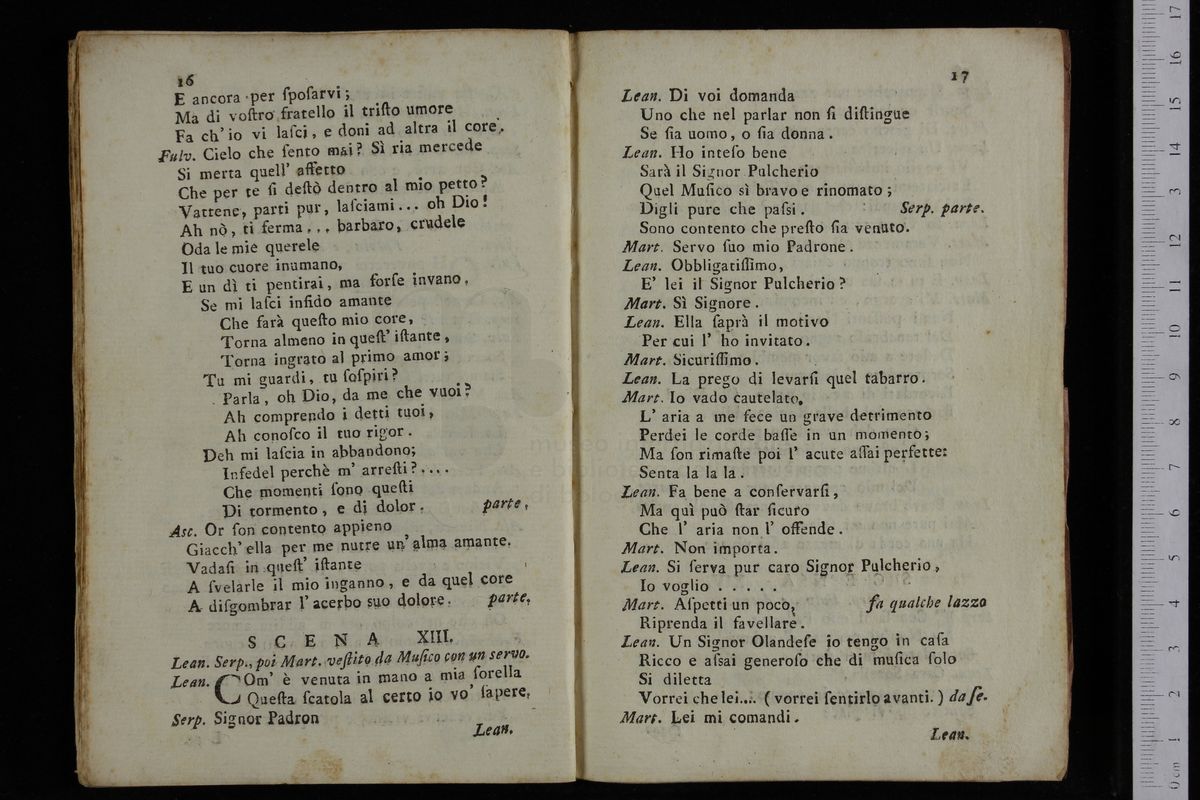 16
E ancora per ſpoſarvi;
Ma di voſtro fratello il triſto umore
Fa ch' io vi laſci, e doni ad altra il core.
Fulv. Cielo che ſento mai? Sì ria mercede
Si merta quell' affetto
Che per te ſi deſtò dentro al mio petto?
Vattene, parti pur, laſciami... oh Dio!
Ah nò, ti ferma... barbaro, crudele
Oda le mie querele
Il tuo cuore inumano,
E un dì ti pentirai, ma forſe invano,
Se mi laſci infido amante
Che farà queſto mio core,
Torna almeno in queſt' iſtante,
Torna ingrato al primo amor;
Tu mi guardi, tu ſoſpiri?
Parla, oh Dio, da me che vuoi?
Ah comprendo i detti tuoi,
Ah conoſco il tuo rigor.
Deh mi laſcia in abbandono;
Infedel perchè m' arreſti?....
Che momenti ſono queſti
Di tormento, e di dolor. parte,
Asc. Or ſon contento appieno
Giacch' ella per me nutre un' alma amante.
Vadaſi in queſt' iſtante
A ſvelarle il mio inganno, e da quel core
A diſgombrar l' acerbo suo dolore. parte,
SCENA XIII.
Lean. Serp., poi Mart. veſtito da Muſico con un servo.
Lean. COm' è venuta in mano a mia ſorella
Queſta ſcatola al certo io vo' ſapere,
Serp. Signor Padron
Lean.
17
Lean. Di voi domanda
Uno che nel parlar non ſi diſtingue
Se ſia uomo, o ſia donna.
Lean. Ho inteſo bene
Sarà il Signor Pulcherio
Quel Muſico sì bravo e rinomato;
Digli pure che paſsi. Serp. parte.
Sono contento che preſto ſia venuto.
Mart. Servo ſuo mio Padrone.
Lean. Obbligatiſſimo,
E' lei il Signor Pulcherio?
Mart. Sì Signore.
Lean. Ella ſaprà il motivo
Per cui l' ho invitato.
Mart. Sicuriſſimo.
Lean. La prego di levarſi quel tabarro.
Mart. Io vado cautelato,
L' aria a me fece un grave detrimento
Perdei le corde baſſe in un momento;
Ma ſon rimaſte poi l' acute aſſai perfette:
Senta la la la.
Lean. Fa bene a conſervarſi,
Ma quì può ſtar ſicuro
Che l' aria non l' offende.
Mart. Non importa.
Lean. Si ſerva pur caro Signor Pulcherio,
Io voglio .....
Mart. Aſpetti un poco, fa qualche lazzo
Riprenda il favellare.
Lean. Un Signor Olandeſe io tengo in caſa
Ricco e aſsai generoſo che di muſica ſolo
Si diletta
Vorrei che lei.... (vorrei ſentirlo avanti.) da ſe.
Mart. Lei mi comandi.
Lean.